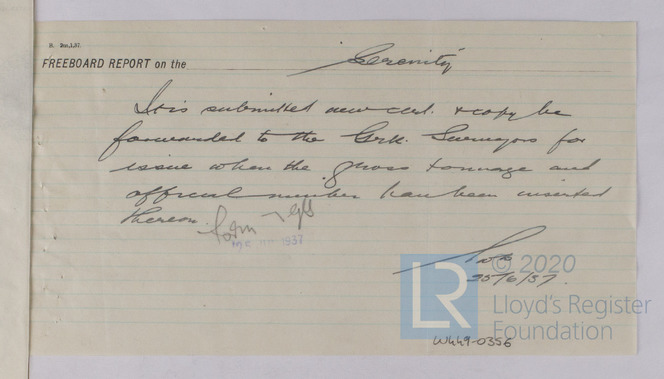 FREEBOARD REPORT on the Serenity
It is submitted new cert. & copy be
forwarded to the Grk. Surveyors for
issue when the gross tonnage and
official number have been inserted
thereon.
1937
25/6/37.
© 2020
LR Lloyd's Register
Foundation
W449-0356